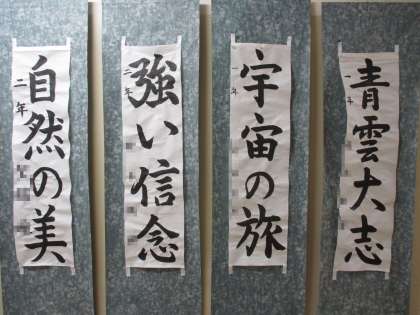 青雲大志
一年
宇宙の旅
一年
強い信念
二年
自然の美
二年